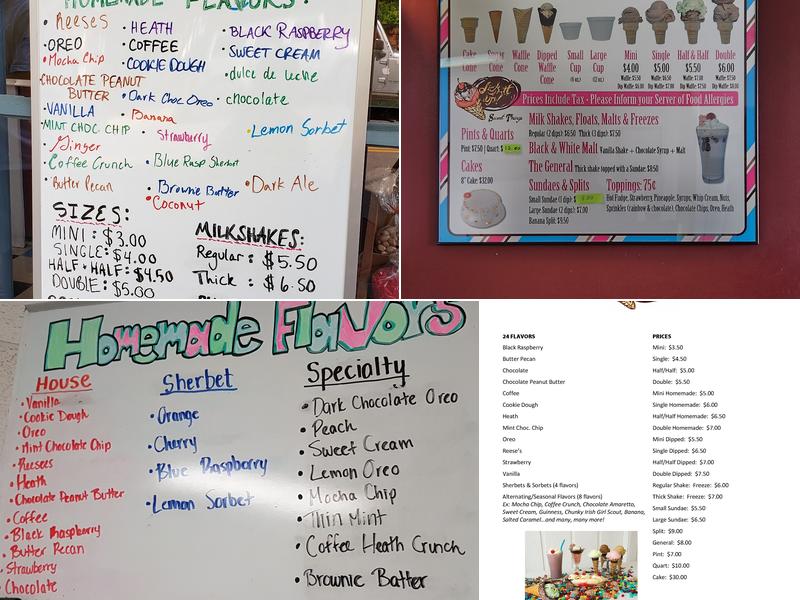 HOMEMADE FLAVORS:
• Reeses
• OREO
• Mocha Chip
CHOCOLATE PEANUT
BUTTER
• VANILLA
• MINT CHOC CHIP
• Ginger
• Coffee Crunch
• Butter Pecan
• HEATH
• COFFEE
• COOKIE DOUGH
• Dark Choc Oreo
• Banana
• Strawberry
• Blue Rasp Sherbet
• Brownie Butter
• Coconut
• BLACK RASPBERRY
• SWEET CREAM
• dulce de leche
• chocolate
• Lemon Sorbet
• Dark Ale
SIZES:
MINI : $3.00
SINGLE: $4.00
HALF + HALF: $4.50
DOUBLE: $5.00
MILKSHAKES:
Regular : $5.50
Thick : $6.50
Cake Cone
Sugar Cone
Waffle Cone
Dipped Waffle Cone
Small Cup (6 oz)
Large Cup (12 oz)
Mini $4.00
Single $5.00
Half & Half $5.50
Double $6.00
Prices Include Tax - Please Inform your Server of Food Allergies
Sweet Things
Pints & Quarts
Pint $7.50 | Quart $
Cakes
8" Cake $32.00
Milk Shakes, Floats, Malts & Freezes
Regular (2 dips) $6.50 Thick (3 dips) $7.50
Black & White Malt Vanilla Shake + Chocolate Syrup + Malt
The General Thick shake topped with a Sundae: $8.50
Sundaes & Splits
Small Sundae (1 dip): $
Large Sundae (2 dips): $7.00
Banana Split: $9.50
Toppings: 75¢
Hot Fudge, Strawberry, Pineapple, Syrups, Whip Cream, Nuts,
Sprinkles (rainbow & chocolate), Chocolate Chips, Oreo, Heath
Homemade Flavors
House
• Vanilla
• Cookie Dough
• Oreo
• Mint Chocolate Chip
• Reeses
• Heath
• Chocolate Peanut Butter
• Coffee
• Black Raspberry
• Butter Pecan
• Strawberry
• Chocolate
Sherbet
• Orange
• Cherry
• Blue Raspberry
• Lemon Sorbet
Specialty
• Dark Chocolate Oreo
• Peach
• Sweet Cream
• Lemon Oreo
• Mocha Chip
• Thin Mint
• Coffee Heath Crunch
• Brownie Batter
24 FLAVORS
Black Raspberry
Butter Pecan
Chocolate
Chocolate Peanut Butter
Coffee
Cookie Dough
Heath
Mint Choc. Chip
Oreo
Reese's
Strawberry
Vanilla
Sherbets & Sorbets (4 flavors)
Alternating/Seasonal Flavors (8 flavors)
Ex: Mocha Chip, Coffee Crunch, Chocolate Amaretto,
Sweet Cream, Guinness, Chunky Irish Girl Scout, Banana,
Salted Caramel...and many, many more!
PRICES
Mini: $3.50
Single: $4.50
Half/Half: $5.00
Double: $5.50
Mini Homemade: $5.00
Single Homemade: $6.00
Half/Half Homemade: $6.50
Double Homemade: $7.00
Mini Dipped: $5.50
Single Dipped: $6.50
Half/Half Dipped: $7.00
Double Dipped: $7.50
Regular Shake: Freeze: $6.00
Thick Shake: Freeze: $7.00
Small Sundae: $5.50
Large Sundae: $6.50
Split: $9.00
General: $8.00
Pint: $7.00
Quart: $10.00
Cake: $30.00